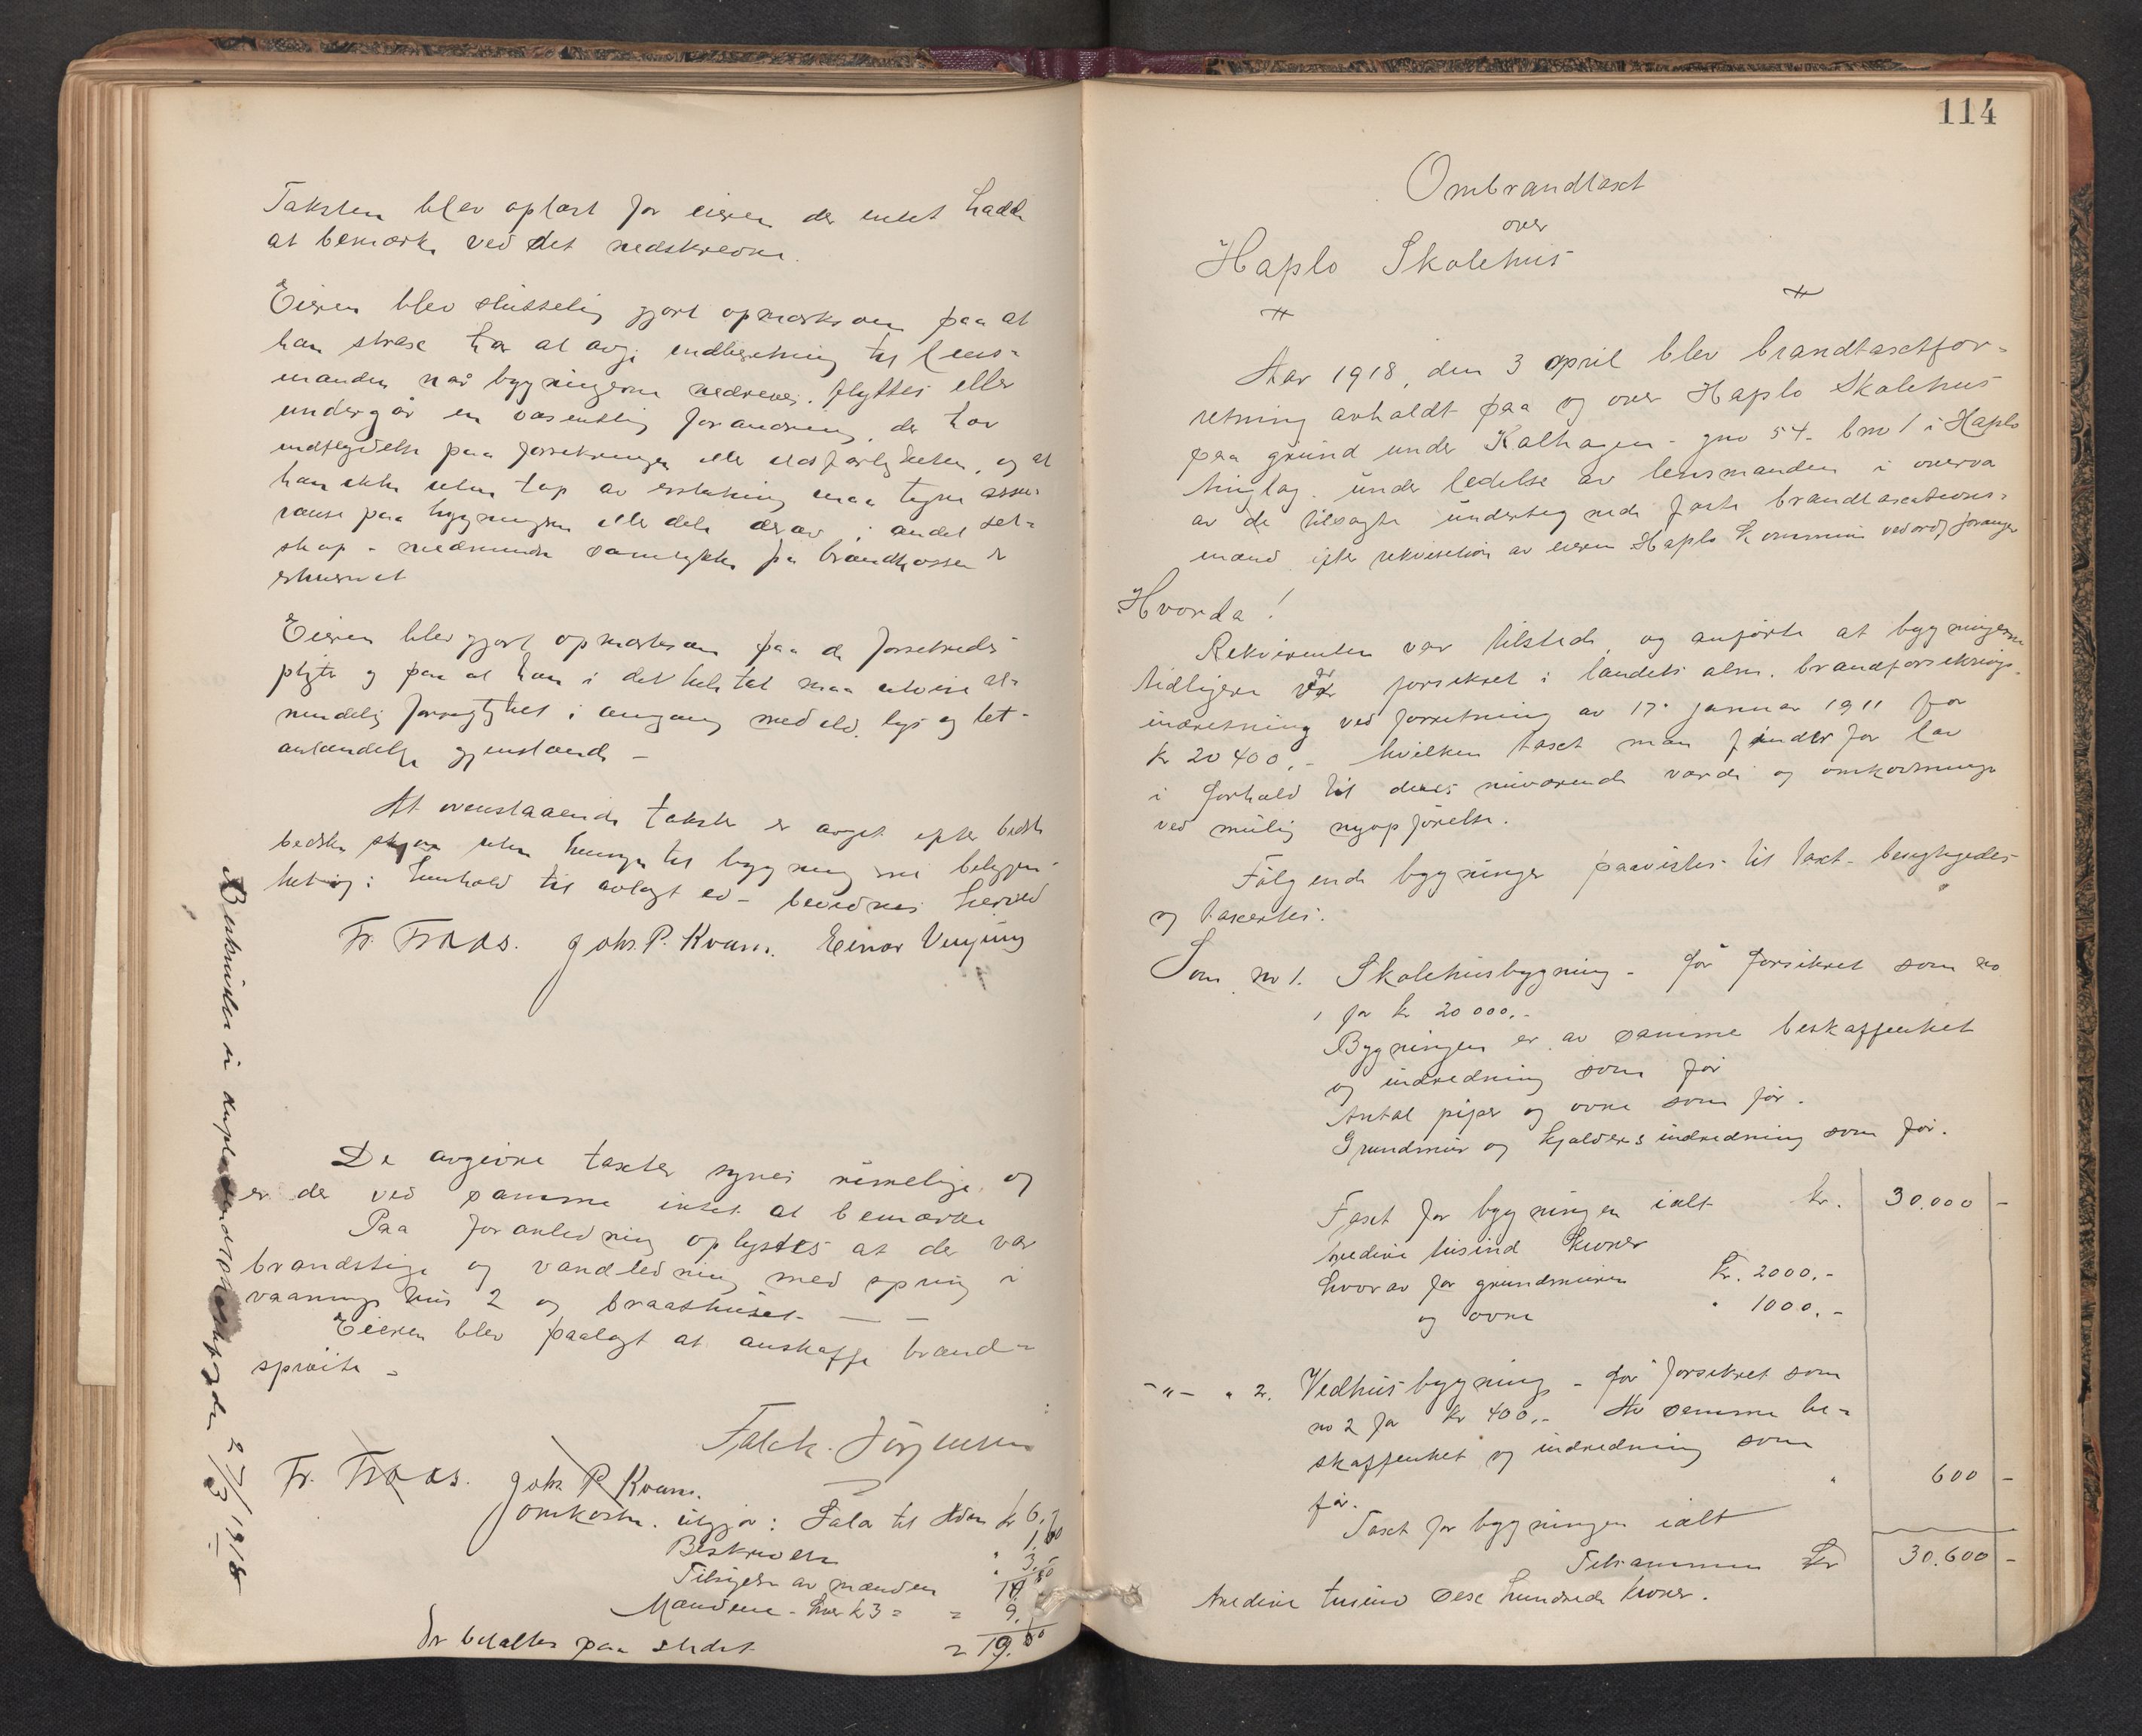 Taksten blev oplæst for eieren der intet hadde
at bemærke ved det nedskrevne.
Eieren blev sluttelig gjort opmerksom paa at
han strax har at avgi indberetning til lens-
manden når bygningerne nedrives, flyttes eller
undergår en væsentlig forandring, der har
indflydelse paa forsikringen eller ildsfarligheten, og at
han ikke uten tap av erstatning maa tegne assu-
ranse paa bygningen eller dele derav i andet sel-
skap - medmindre samtykke fra brandkassen er
erhvervet
Eieren blev gjort opmerksom paa de forsikredes
pligter og paa at han i det hele tat maa utvise al-
mindelig forsigtighet i omgang med ild, lys og let-
antændelige gjenstande -
At ovenstaaende takster er avgit efter bedste
skjøn uten hensyn til bygningernes beliggen-
het og i henhold til avlagt ed - bevidnes herved
Fr. Fraas. Johs. P. Kvam. Einar
De avgivne taxter synes rimelige og
er der ved samme intet at bemærke
Paa foranledning oplystes at der var
brandstige og vandledning med spring i
vaaningshus 2 og
Eieren blev paalagt at anskaffe brand-
sprøite -
Falck. Jörgensen
Fr. Fraas. Johs P. Kvam.
Omkostn. utgjør:
Beskrivelse
Tilsigelse av mændene
Mændene - hver k 3 = = 9.
Er betaltes paa stedet = 19.
27/3 1918
114
Ombrandtaxt
over
Haplo Skolehus
Aar 1918, den 3 april blev brandtaxtfor-
retning avholdt paa og over Haplo Skolehus
paa grund under Kalhagen - gno 54 - bno 1 i Haplo
tinglag under ledelse av lensmanden i overvær
av de tilsagte undertegnede faste brandtaxations-
mænd efter rekvisition av eieren Haplo kommune ved ordfføreren
Hvorda!
Rekvirenten var tilstede og anførte at bygningerne
tidligere er forsikret i landets alm. brandforsikrings-
indretning ved forretning av 17. januar 1911 for
kr 20 400,- hvilken taxt man finder for lav
i forhold til deres nuværende værdi og omkostninger
ved mulig nyopførelse.
Følgende bygninger paavistes til taxt - besigtigedes
og taxertes.
Som no 1. Skolehusbygning - før forsikret som no
1 for kr 20 000,-
Bygningen er av samme beskaffenhet
og indredning som før
Antal piper og ovne som før.
Grundmur og kjælderes indredning som før.
Taxt for bygningen ialt kr. 30.000 -
tredive tusind kroner
hvorav for grundmuren kr. 2000.-
og ovne " 1000.-
-"- " 2. Vedhusbygning - før forsikret som
no 2 for kr 400,- Av samme be-
skaffenhet og indredning som
før. " 600 -
Taxt for bygningen ialt
Tilsammen kr 30.600 -
tredive tusind sex hundrede kroner.